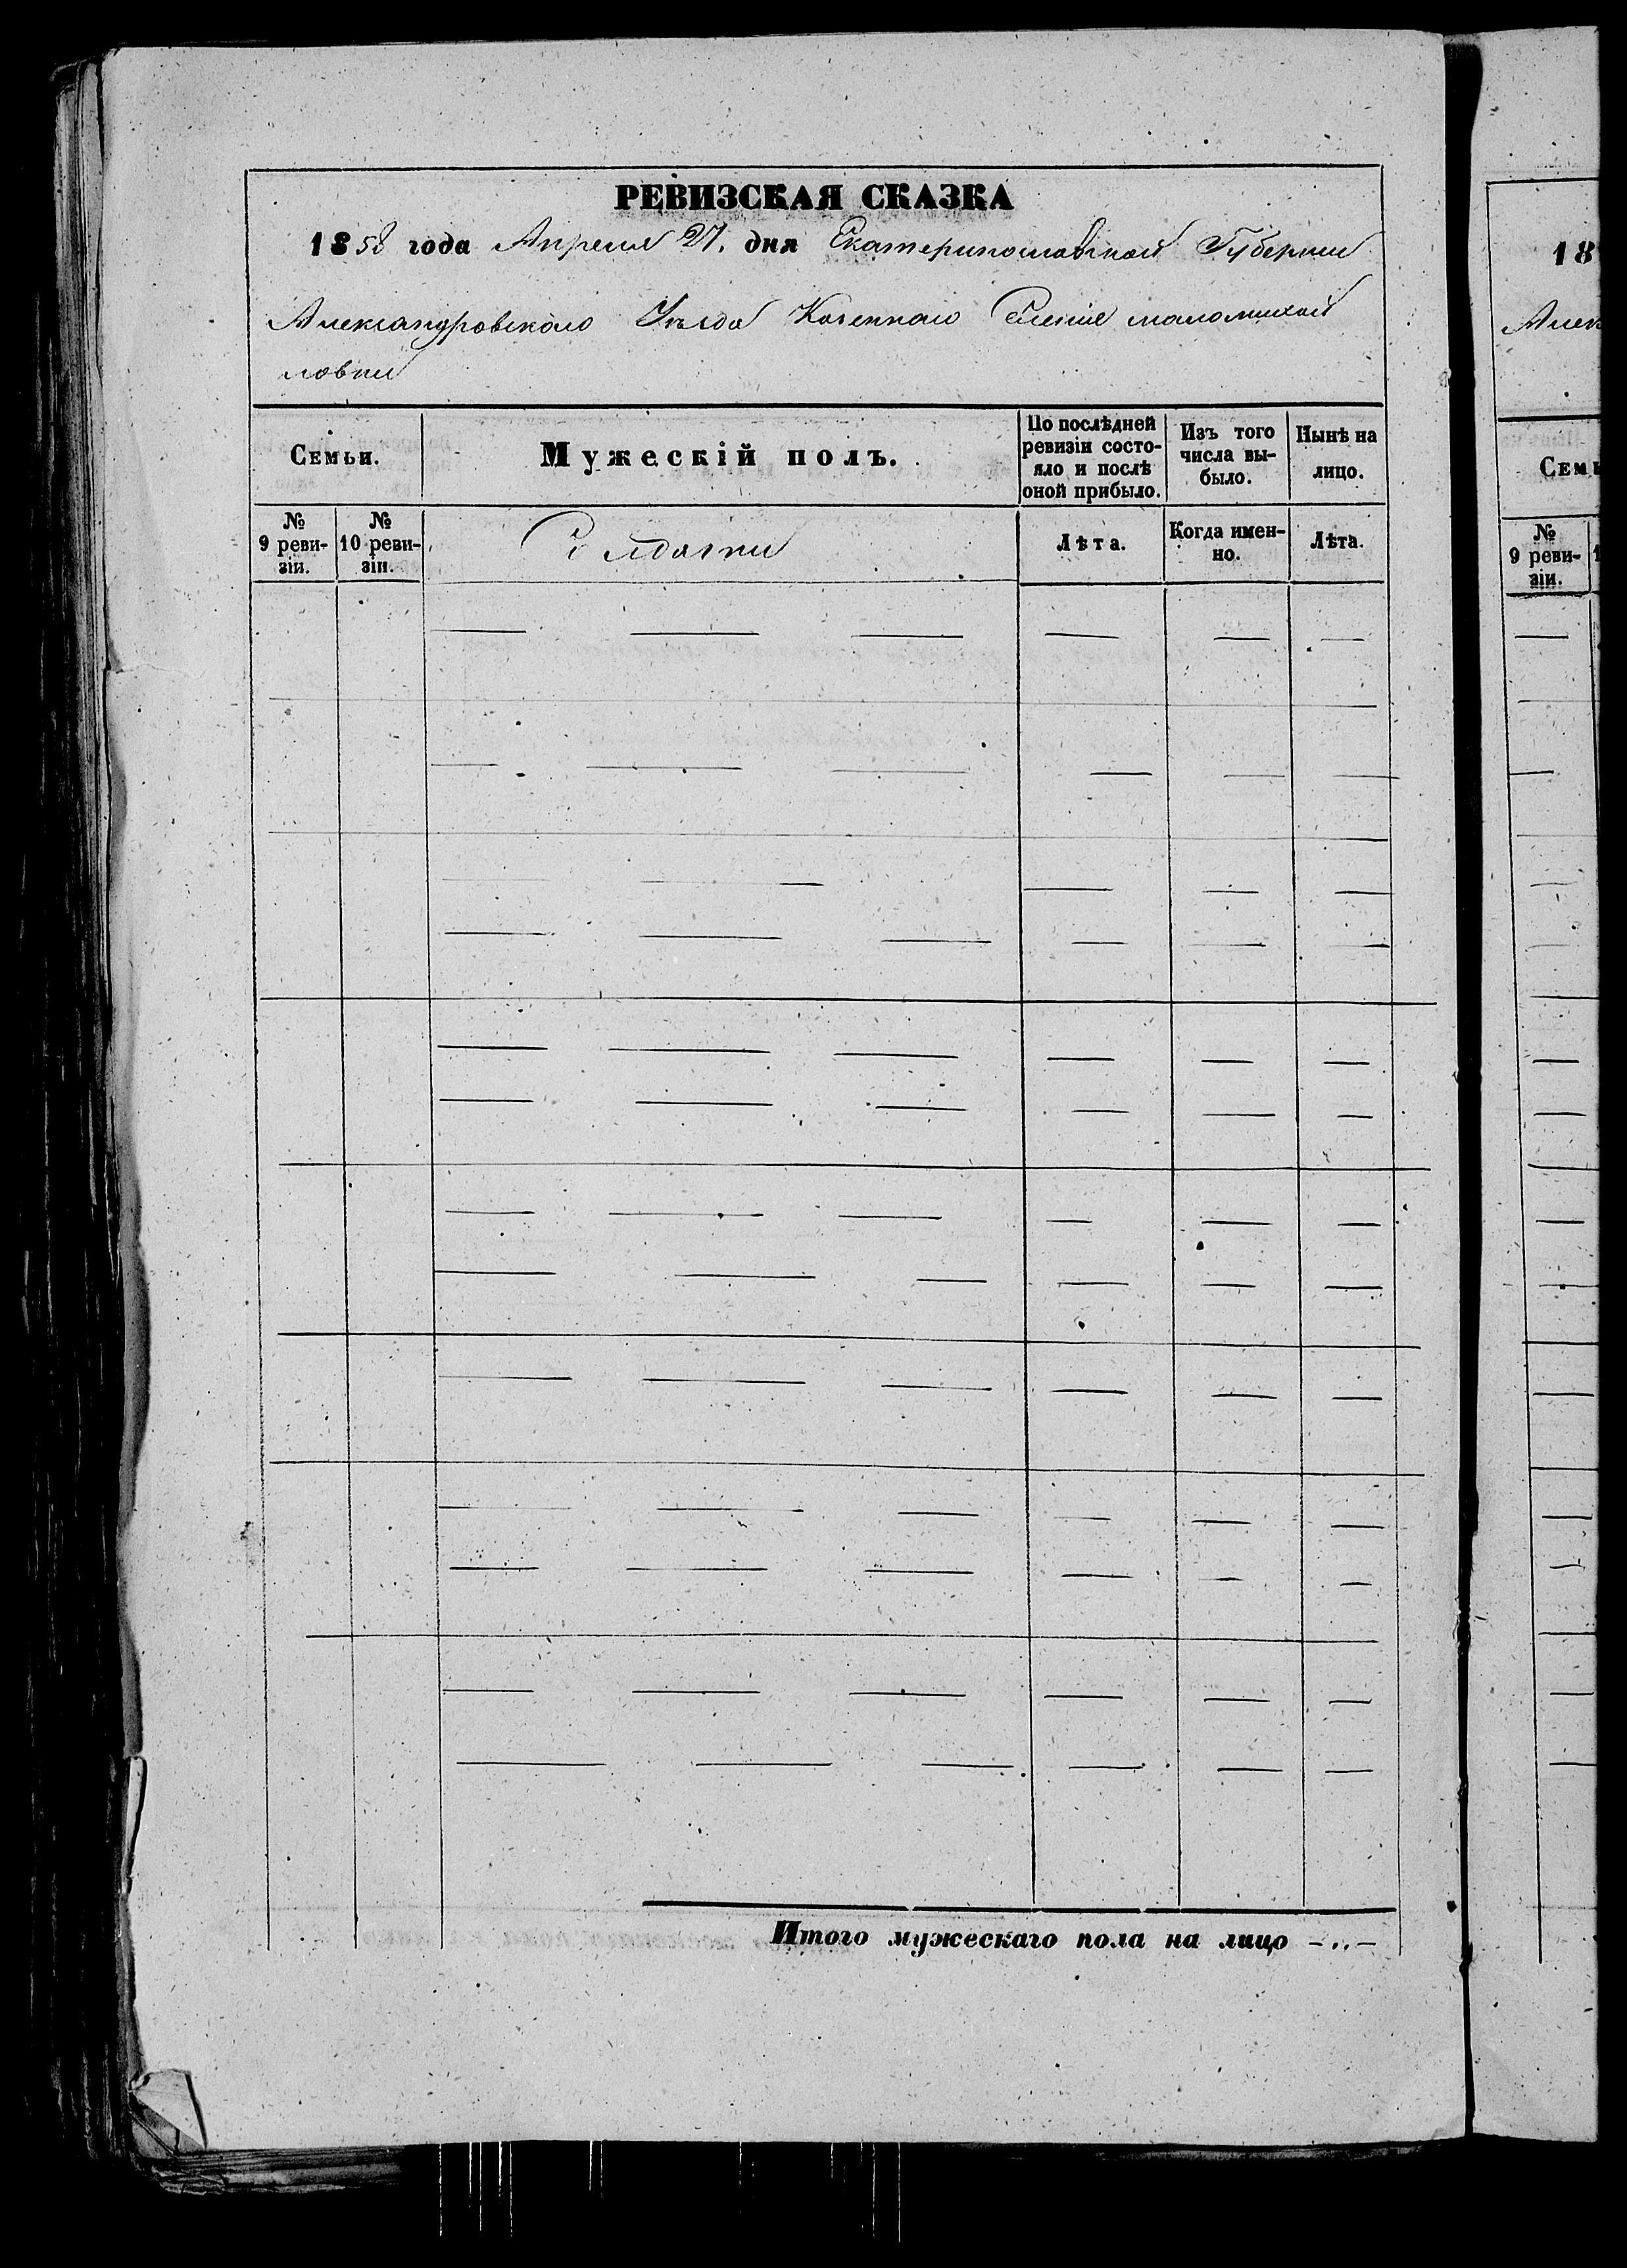 РЕВИЗСКАЯ СКАЗКА
1858 года Апреля 27. дня Екатеринославской Губернии
Александровского Уезда Казенного Селения маломихай
ловки
Семьи.
Мужескій полъ.
По послѣдней ревизіи состо-
яло и послѣ
оной прибыло.
Изъ того
числа вы-
было.
Нынѣ на
лицо.
№
9 реви-
зіи.
№
10 реви-
зіи.
Солдатки
Лѣта.
Когда имен-
но.
Лѣта.
Итого мужескаго пола на лицо -..-
18
Алек
Семь
№
9 реви-
зіи.
1